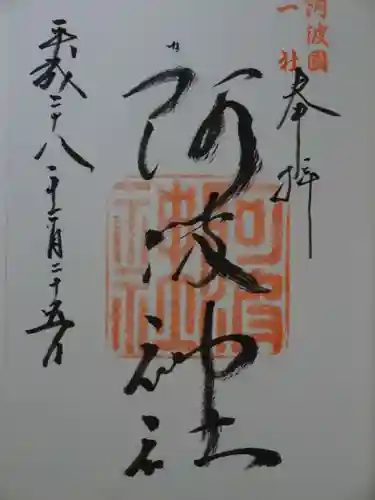 阿波國
一社
奉拝
阿波神社
平成二十八年十一月二十五日